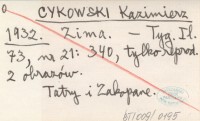 CYKOWSKI Kazimierz
1932. Zima. — Tyg. Il.
73, nr 21: 340, tylko reprod.
2 obrazów.
Tatry i Zakopane.
bT/009/0195